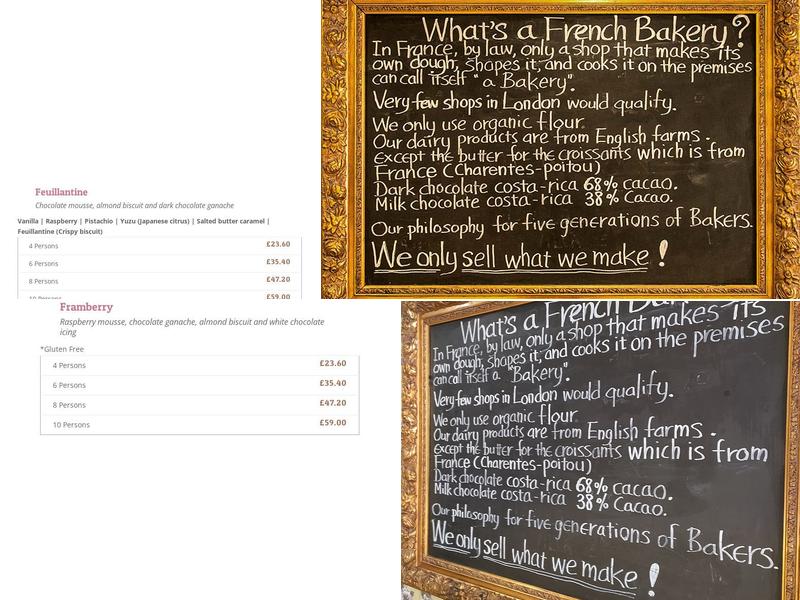 Feuillantine
Chocolate mousse, almond biscuit and dark chocolate ganache
Vanilla | Raspberry | Pistachio | Yuzu (Japanese citrus) | Salted butter caramel |
Feuillantine (Crispy biscuit)
4 Persons £23.60
6 Persons £35.40
8 Persons £47.20
10 Persons £59.00
What's a French Bakery?
In France, by law, only a shop that makes its
own dough, shapes it, and cooks it on the premises
can call itself "a Bakery".
Very few shops in London would qualify.
We only use organic flour.
Our dairy products are from English farms.
Except the butter for the croissants which is from
France (Charentes-poitou)
Dark chocolate costa-rica 68% cacao.
Milk chocolate costa-rica 38% Cacao.
Our philosophy for five generations of Bakers.
We only sell what we make!
Framberry
Raspberry mousse, chocolate ganache, almond biscuit and white chocolate
icing
*Gluten Free
4 Persons £23.60
6 Persons £35.40
8 Persons £47.20
10 Persons £59.00
What's a French
In France, by law, only a shop that makes its
own dough, shapes it, and cooks it on the premises
can call itself a "Bakery".
Very few shops in London would qualify.
We only use organic flour
Our dairy products are from English farms.
Except the butter for the croissants which is from
France (Charentes-poitou)
Dark chocolate costa-rica 68% cacao.
Milk chocolate costa-rica 38% Cacao.
Our philosophy for five generations of Bakers.
We only sell what we make!